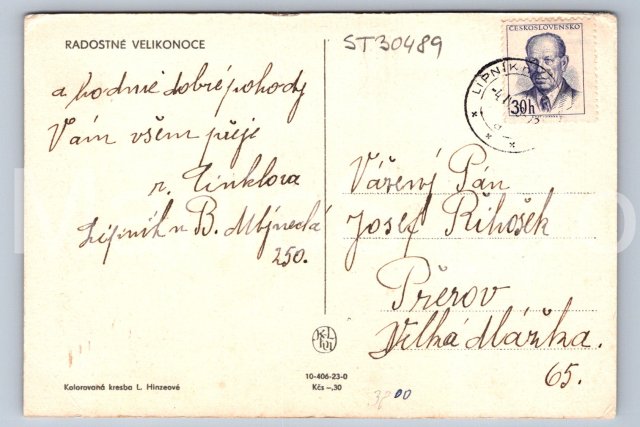 RADOSTNÉ VELIKONOCE
a hodně dobré pohody
Vám všem přeje
r. Cinklova
Lipník n B. Mlýnecká
250.
ST30489
ČESKOSLOVENSKO
30h
LIPNÍK
Vážený Pán
Josef Řihošek
Přerov
Velká Dlážka.
65.
KLHM
10-406-23-0
Kčs -,30
Kolorovaná kresba L. Hinzeové
3800